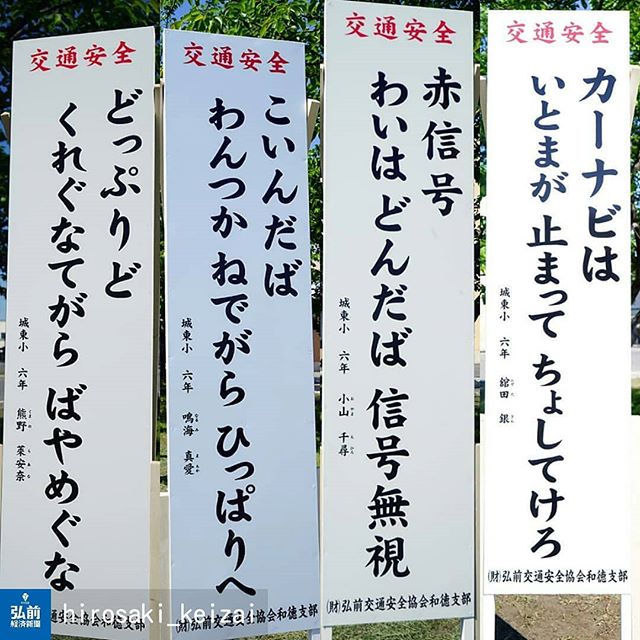 交通安全
どっぷりど
くれぐなてがら ばやめぐな
城東小 六年 熊野 莱安奈
通安全協会和徳支部
交通安全
こいんだば
わんつか ねでがら ひっぱりへ
城東小 六年 鳴海 真愛
(財)弘前交通安全協会和徳支部
交通安全
赤信号
わいは どんだば 信号無視
城東小 六年 小山 千尋
(財)弘前交通安全協会和徳支部
交通安全
カーナビは
いとまが 止まって ちょしてけろ
城東小 六年 舘田 銀
(財)弘前交通安全協会和徳支部
弘前
経済新聞
hirosaki_keizai